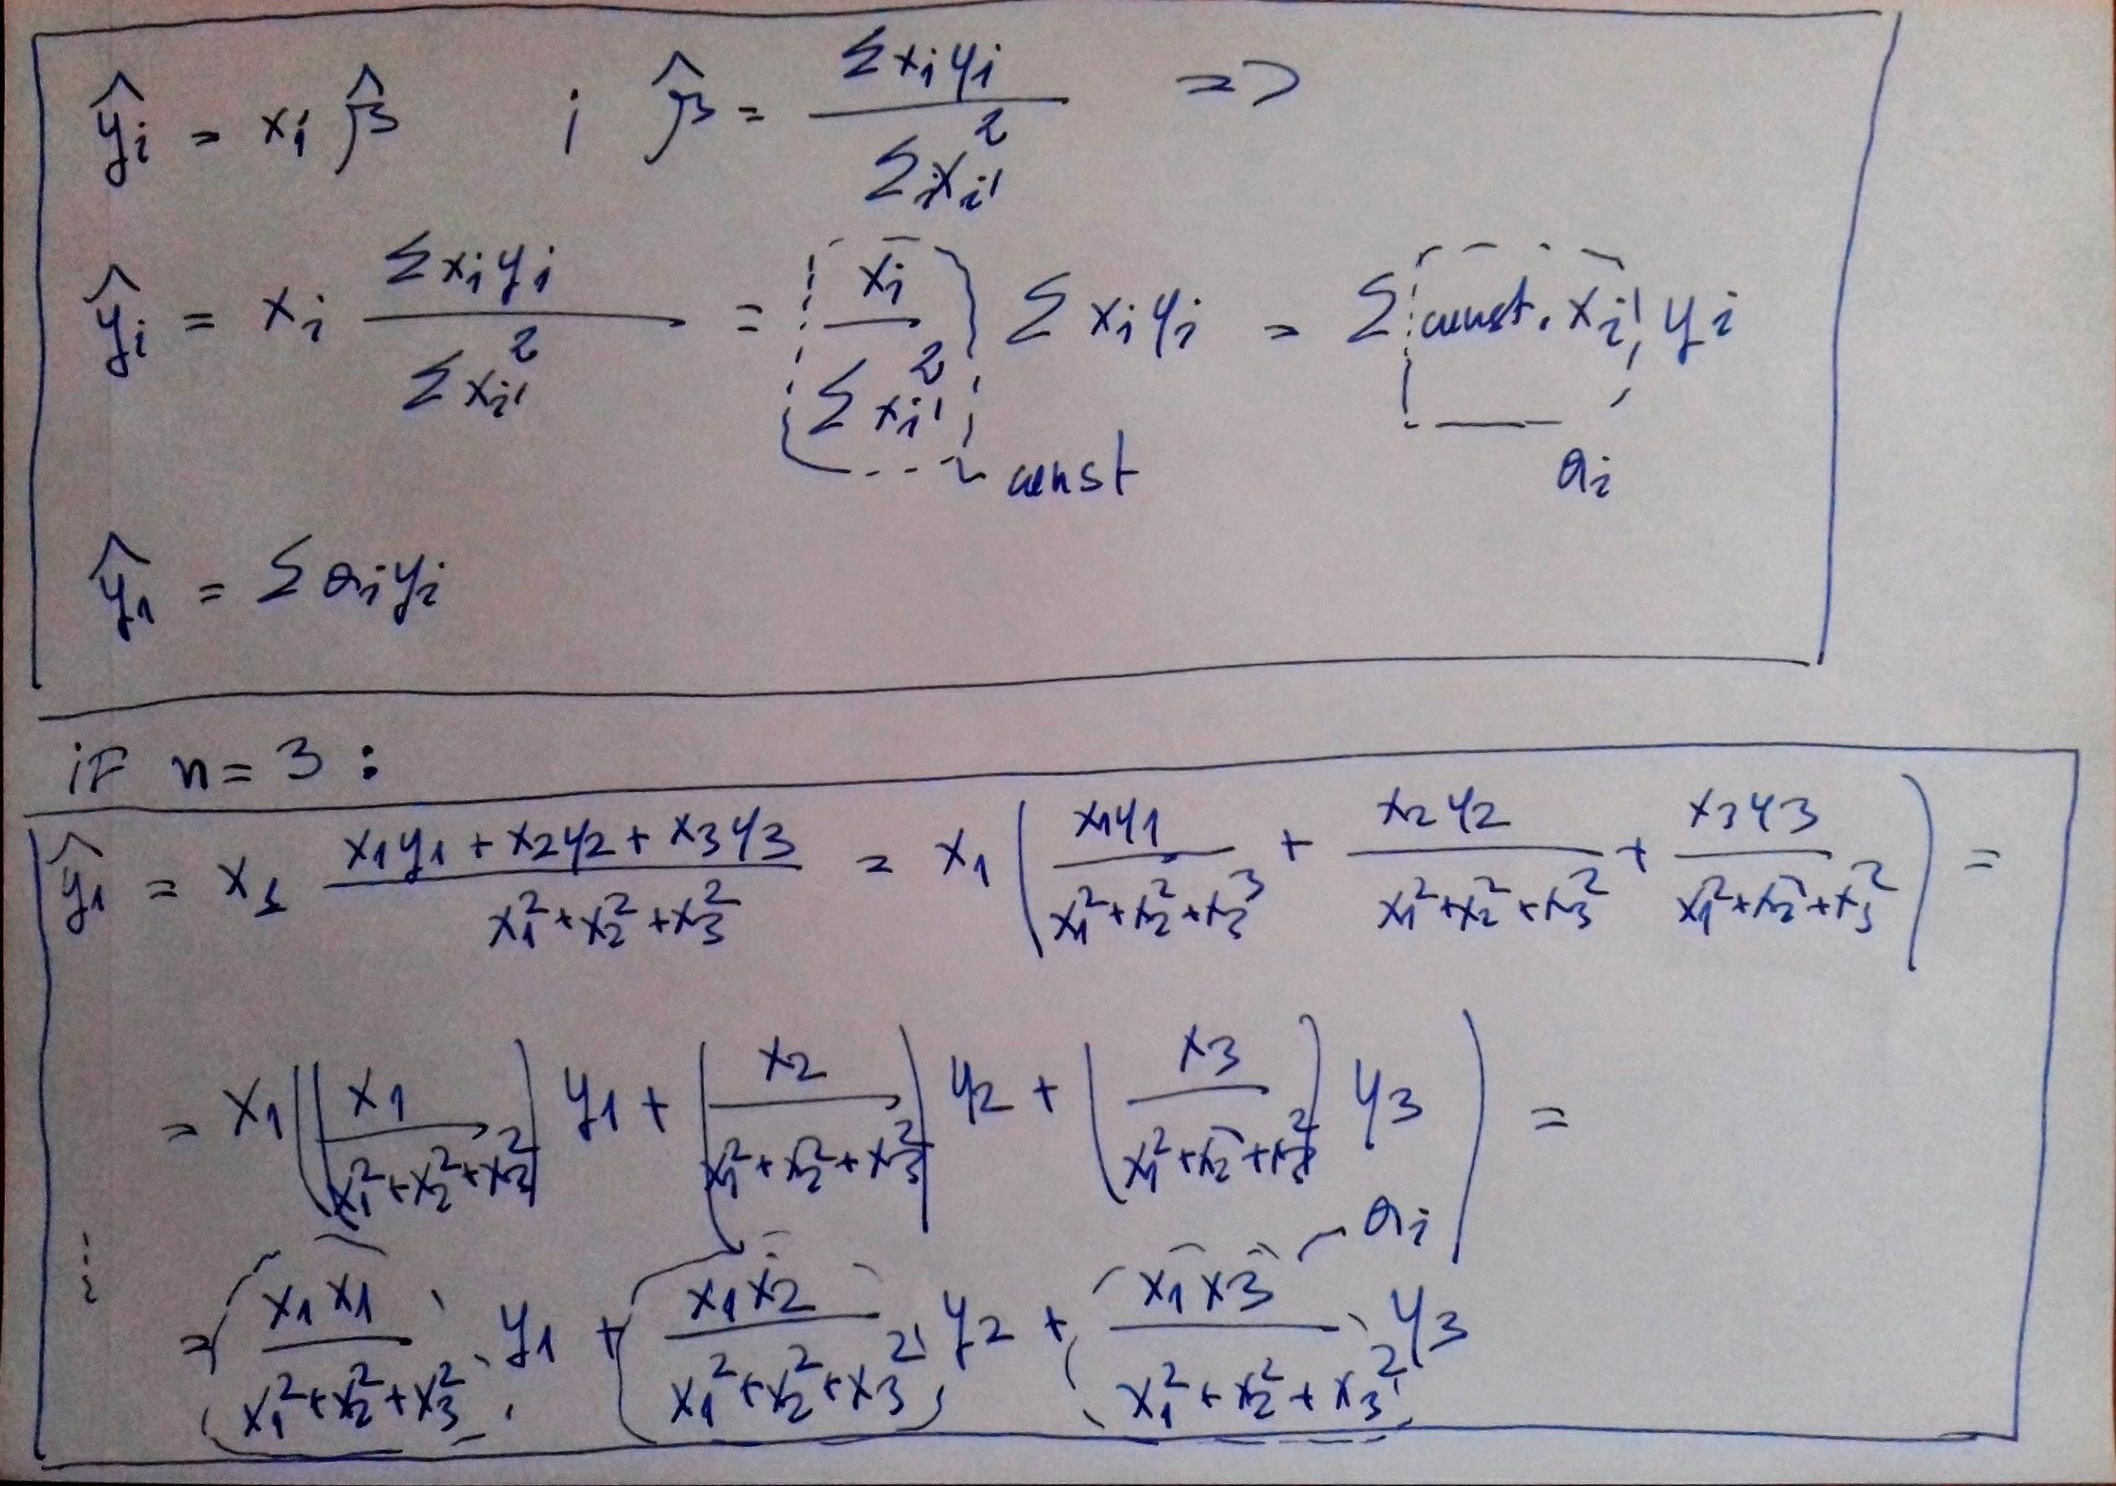 ŷᵢ = xᵢ β̂ ; β̂ = Σxᵢyᵢ / Σᵢ'xᵢ'² =>
ŷᵢ = xᵢ Σxᵢyᵢ / Σxᵢ'² = xᵢ / Σxᵢ'² Σxᵢyᵢ = Σ const. xᵢ' yᵢ
const
aᵢ
ŷ₁ = Σaᵢyᵢ
if n = 3 :
ŷ₁ = x₁ (x₁y₁ + x₂y₂ + x₃y₃) / (x₁² + x₂² + x₃²) = x₁ ( x₁y₁ / (x₁² + x₂² + x₃³) + x₂y₂ / (x₁² + x₂² + x₃²) + x₃y₃ / (x₁² + x₂² + x₃²) ) =
= x₁ ( ( x₁ / (x₁² + x₂² + x₃²) ) y₁ + ( x₂ / (x₁² + x₂² + x₃²) ) y₂ + ( x₃ / (x₁² + x₂² + x₃²) ) y₃ ) =
aᵢ
= x₁x₁ / (x₁² + x₂² + x₃²) y₁ + x₁x₂ / (x₁² + x₂² + x₃²) y₂ + x₁x₃ / (x₁² + x₂² + x₃²) y₃